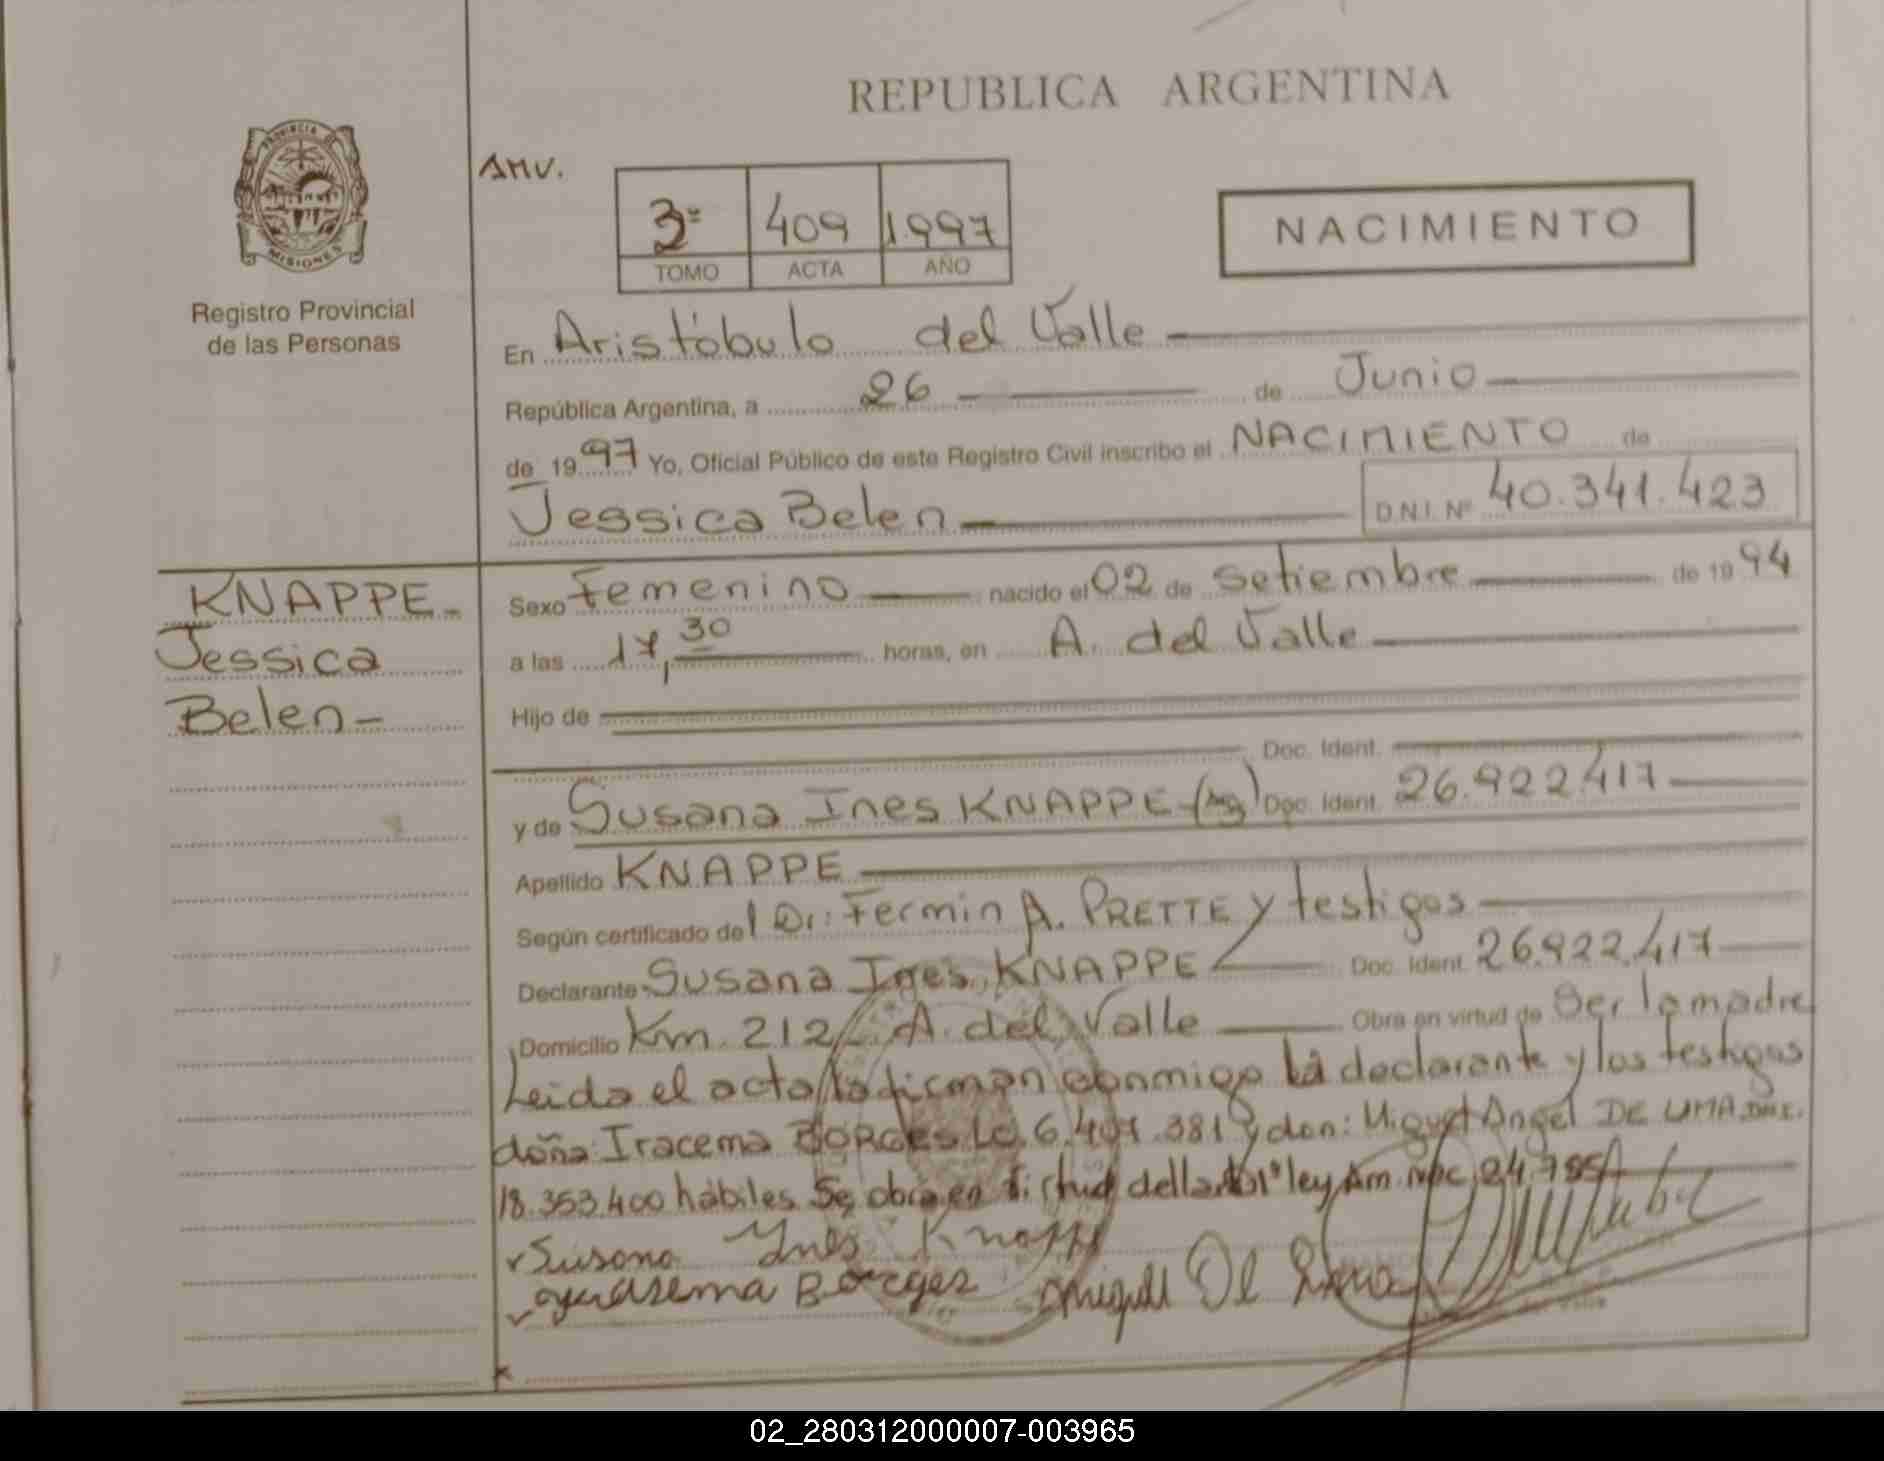 REPUBLICA ARGENTINA
PROVINCIA DE
MISIONES
Registro Provincial
de las Personas
AMV.
3º 409 1.997
TOMO ACTA AÑO
NACIMIENTO
En Aristóbulo del Valle
República Argentina, a 26 de Junio
de 1997 Yo, Oficial Público de este Registro Civil inscribo el NACIMIENTO de
Jessica Belen D.N.I. Nº 40.341.423
KNAPPE
Jessica
Belen
Sexo Femenino nacido el 02 de setiembre de 1994
a las 17,30 horas, en A. del Valle
Hijo de
Doc. Ident.
y de Susana Ines KNAPPE Doc. Ident. 26.922.417
Apellido KNAPPE
Según certificado del Dr: Fermin A. PRETTE y testigos
Declarante Susana Ines KNAPPE Doc. Ident. 26.922.417
Domicilio Km. 212 A. del Valle Obra en virtud de Ser la madre
Leida el acta la firman conmigo la declarante y los testigos
doña: Iracema BORGES Lc. 381 y don: Miguel Angel DE LIMA DNI.
18.353.400 hábiles. Se obra en virtud del 1º ley Am. Nac. 24.755
Susana Ines Knappe
Borges Miguel De Lima
02_280312000007-003965